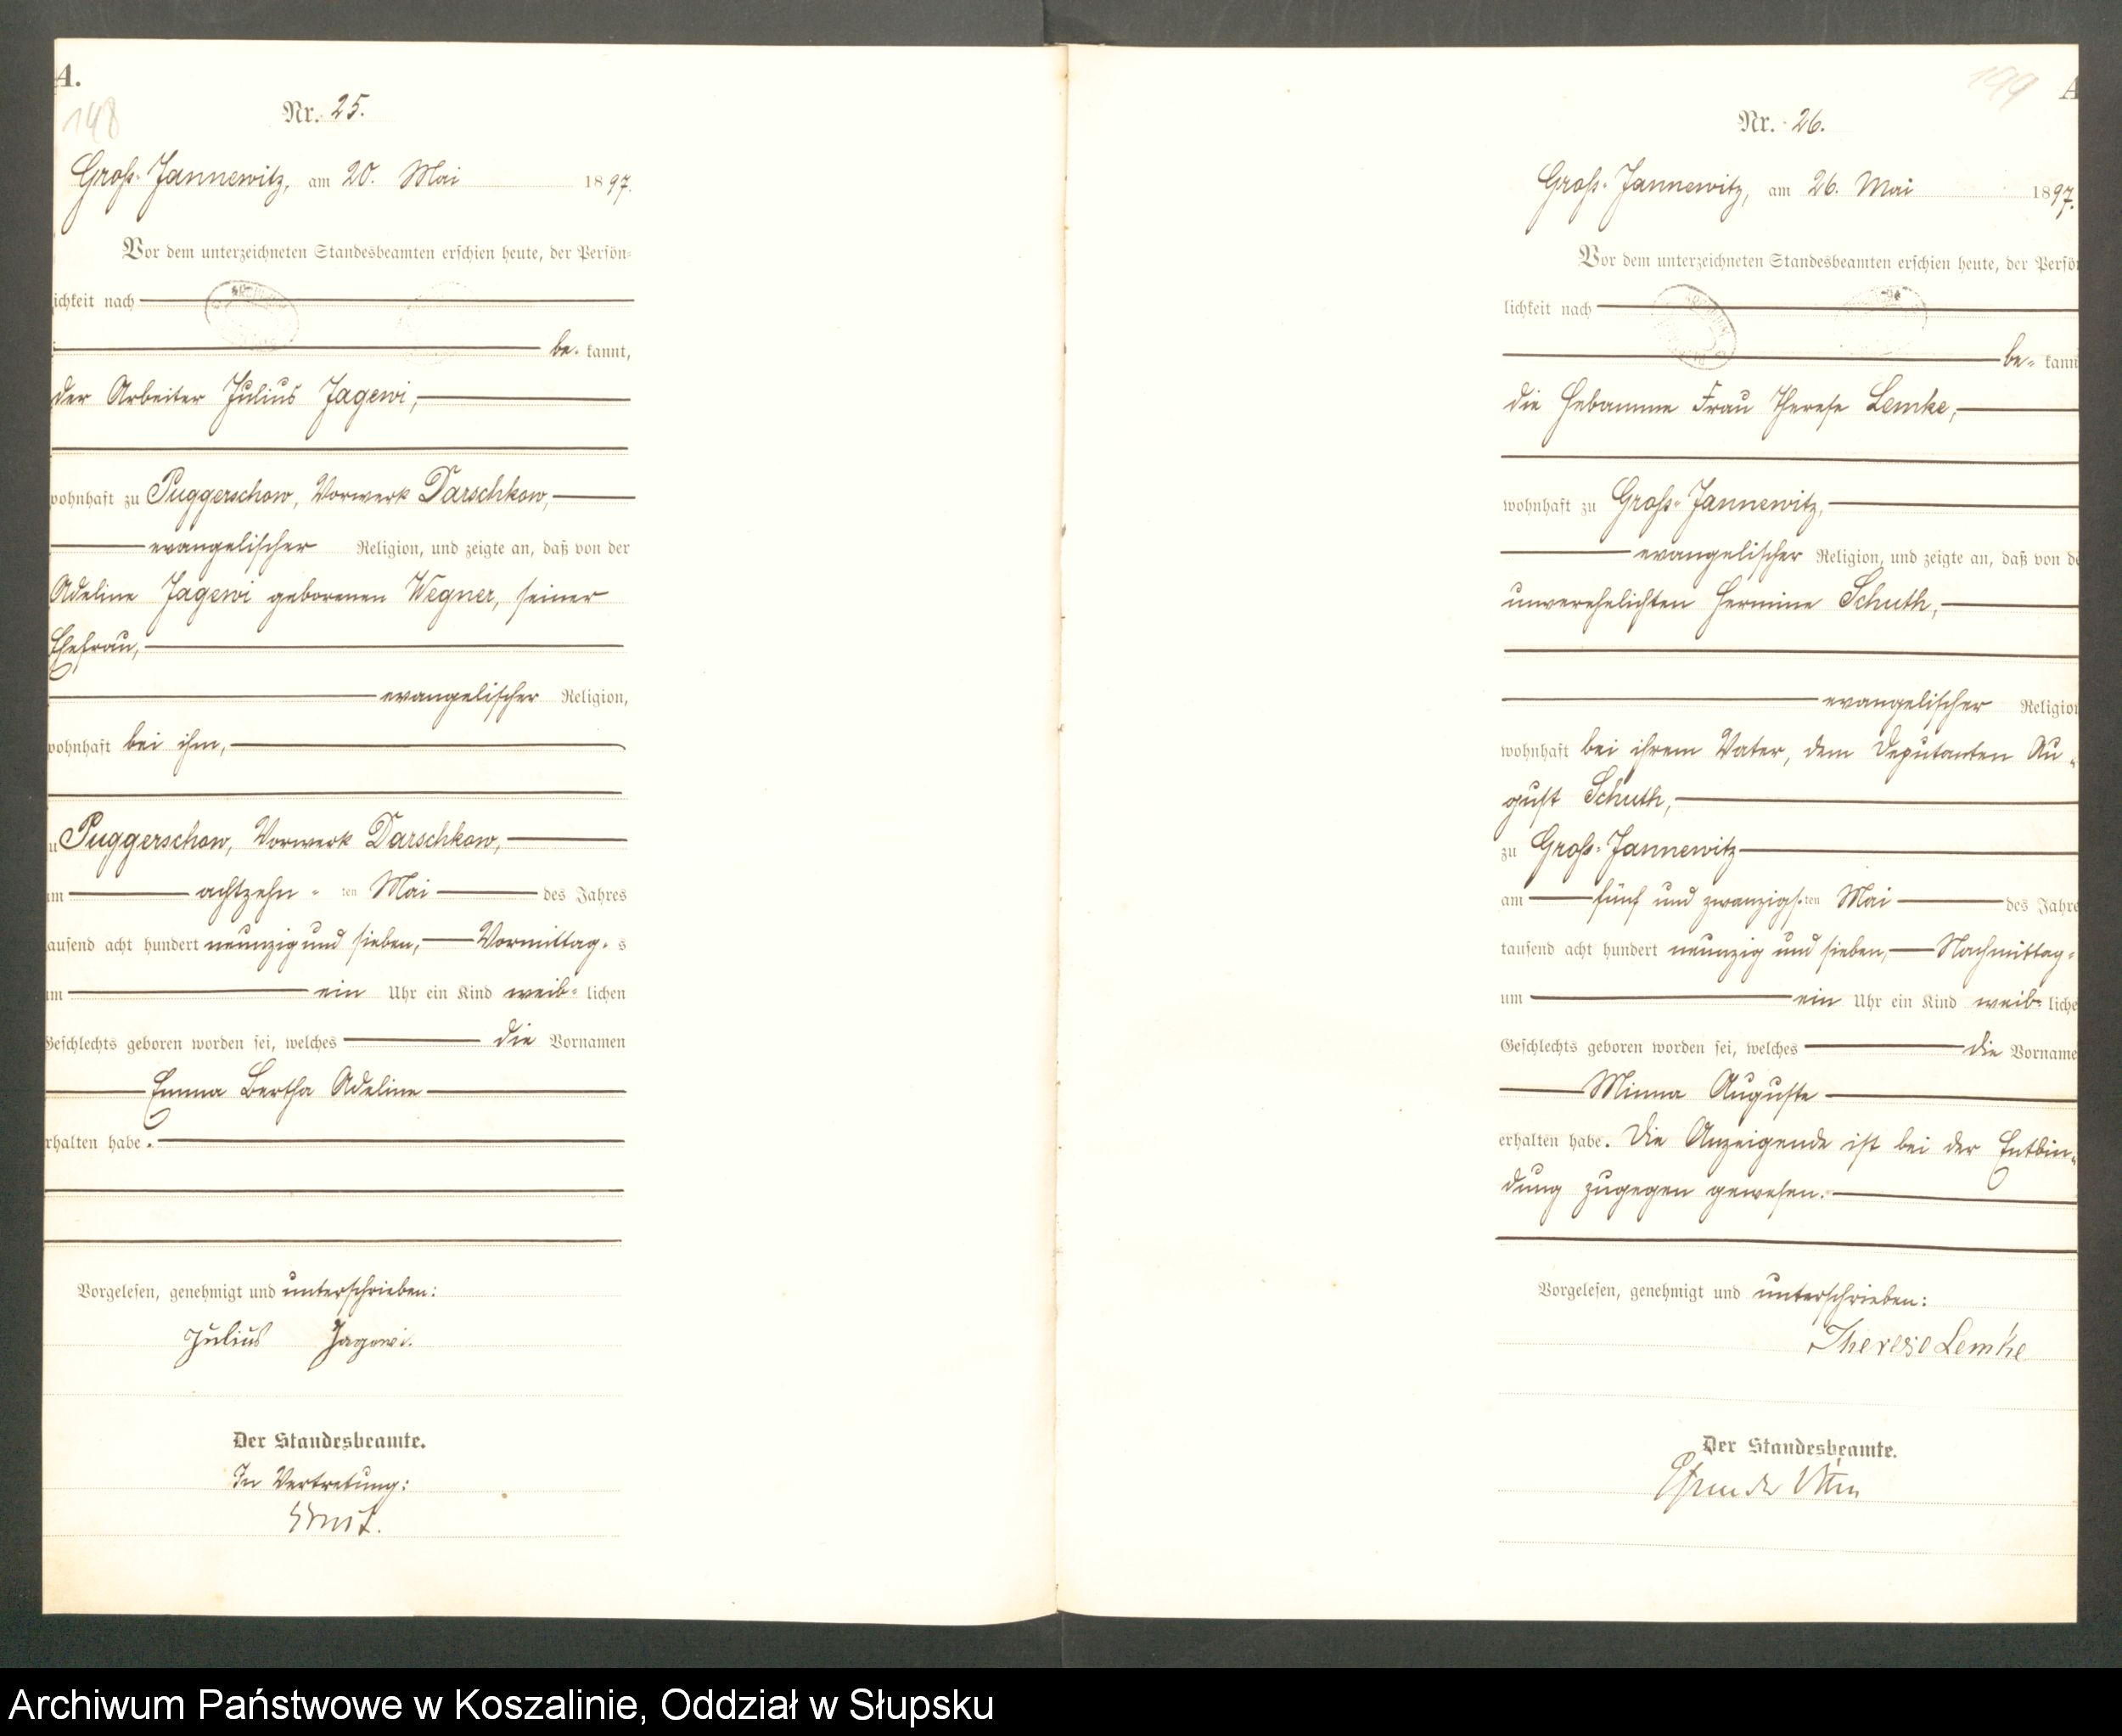 A.
148
Nr. 25.
Groß-Jannewitz, am 20. Mai 1897.
Vor dem unterzeichneten Standesbeamten erschien heute, der Persön-
lichkeit nach
be- kannt,
der Arbeiter Julius Jagewi,
wohnhaft zu Puggerschow, Vorwerk Darschkow,
evangelischer Religion, und zeigte an, daß von der
Adeline Jagewi geborenen Wegner, seiner
Ehefrau,
evangelischer Religion,
wohnhaft bei ihm,
zu Puggerschow, Vorwerk Darschkow,
am achtzehn - ten Mai des Jahres
tausend acht hundert neunzig und sieben, Vormittag-s
um ein Uhr ein Kind weib- lichen
Geschlechts geboren worden sei, welches die Vornamen
Emma Bertha Adeline
erhalten habe.
Vorgelesen, genehmigt und unterschrieben:
Julius Jagewi.
Der Standesbeamte.
In Vertretung:
A
Nr. 26.
Groß-Jannewitz, am 26. Mai 1897.
Vor dem unterzeichneten Standesbeamten erschien heute, der Persön
lichkeit nach
be- kann
die Hebamme Frau Therese Lemke,
wohnhaft zu Groß-Jannewitz,
evangelischer Religion, und zeigte an, daß von de
unverehelichten Hermine Schuth,
evangelischer Religion
wohnhaft bei ihrem Vater, dem Deputanten Au-
gust Schuth,
zu Groß-Jannewitz
am fünf und zwanzigs-ten Mai des Jahre
tausend acht hundert neunzig und sieben, Nachmittag-
um ein Uhr ein Kind weib- liche
Geschlechts geboren worden sei, welches die Vorname
Minna Auguste
erhalten habe. Die Anzeigende ist bei der Entbin-
dung zugegen gewesen.
Vorgelesen, genehmigt und unterschrieben:
Therese Lemke
Der Standesbeamte.
Archiwum Państwowe w Koszalinie, Oddział w Słupsku